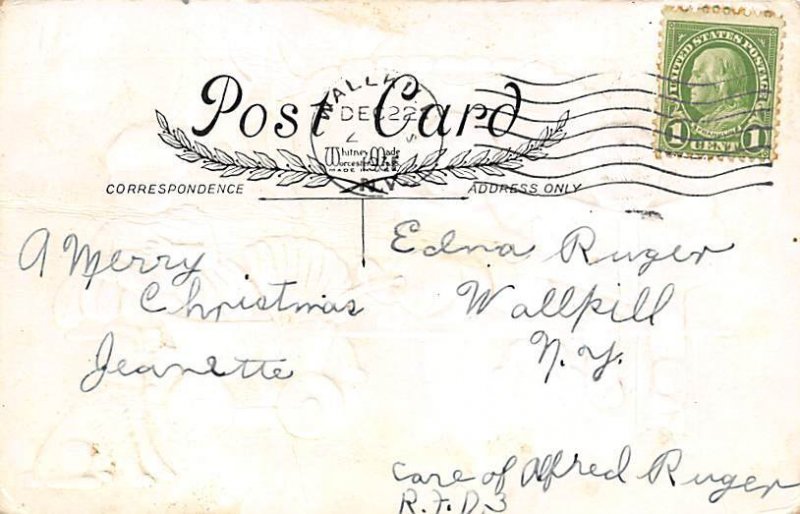 Post Card
WALLKILL
DEC 22
N.Y.
Whitney Made
Worcester, Mass.
MADE IN
UNITED STATES POSTAGE
FRANKLIN
1 CENT 1
CORRESPONDENCE
ADDRESS ONLY
A Merry
Christmas
Jeanette
Edna Ruger
Wallkill
N.Y.
care of Alfred Ruger
R.F.D. 3